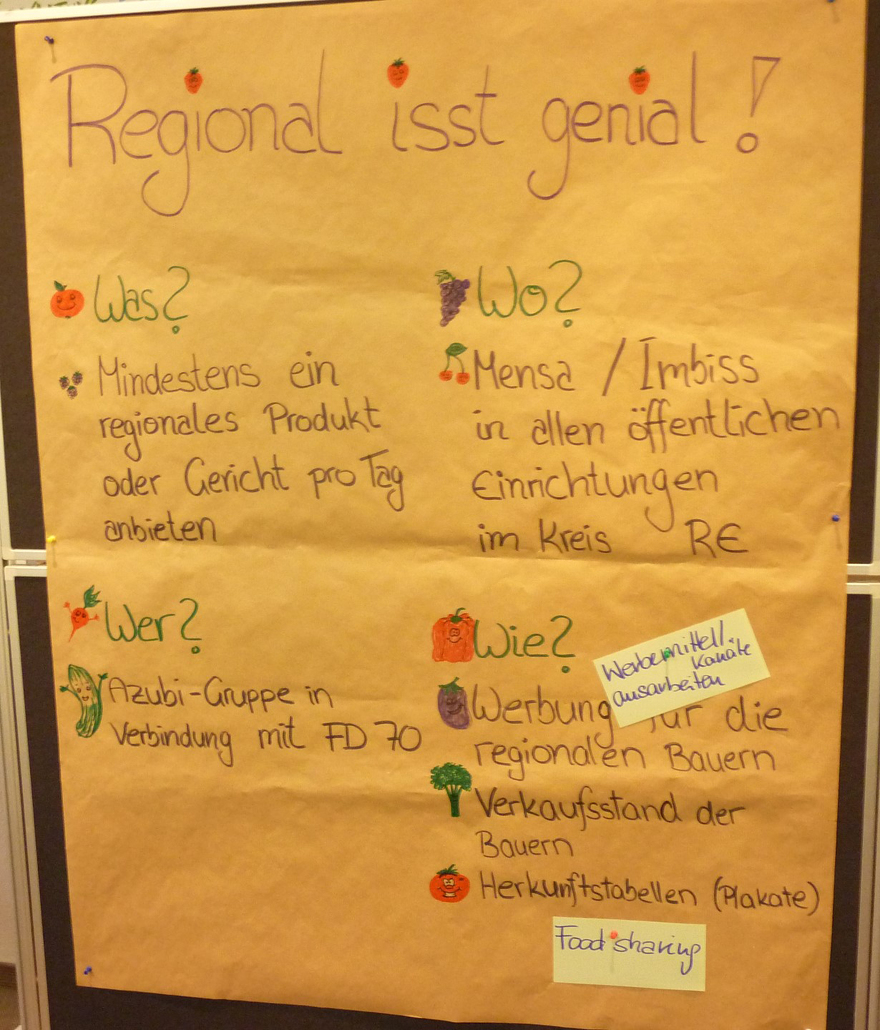 Regional isst genial!
Was?
Mindestens ein
regionales Produkt
oder Gericht pro Tag
anbieten
Wo?
Mensa / Imbiss
in allen öffentlichen
Einrichtungen
im Kreis RE
Wer?
Azubi-Gruppe in
Verbindung mit FD 70
Wie?
Werbemittel/
Kanäle
ausarbeiten
Werbung für die
regionalen Bauern
Verkaufsstand der
Bauern
Herkunftstabellen (Plakate)
Food sharing